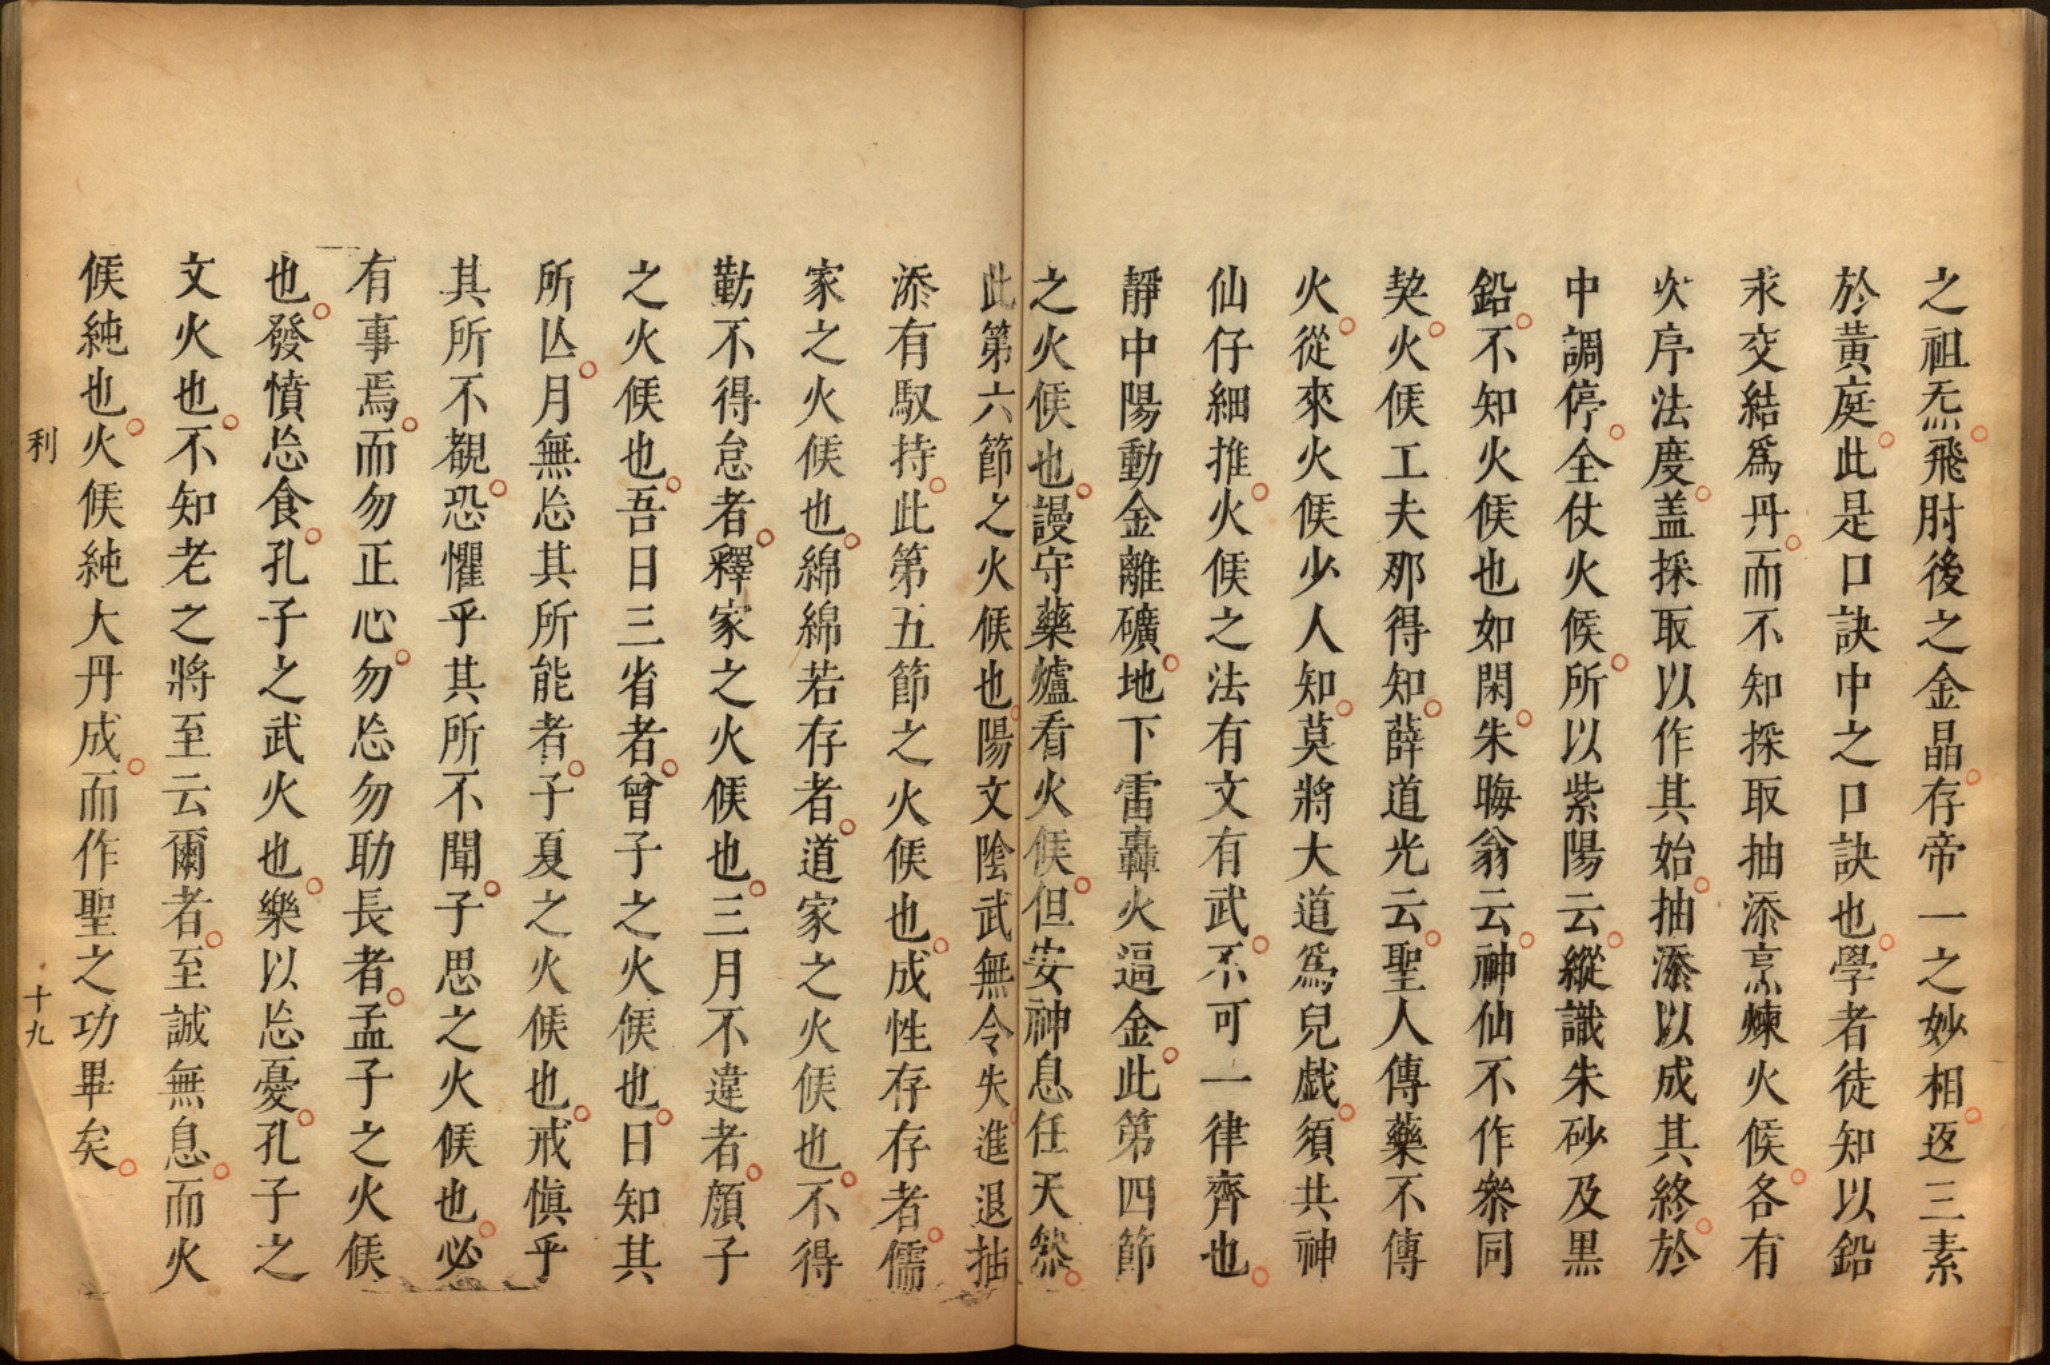 之祖炁飛肘後之金晶存帝一之妙相返三素
於黃庭此是口訣中之口訣也學者徒知以鉛
求交結爲丹而不知採取抽添烹煉火候各有
次序法度盖採取以作其始抽添以成其終於
中調停全仗火候所以紫陽云縱識朱砂及黒
鉛不知火候也如閑朱晦翁云神仙不作叅同
契火候工夫那得知薛道光云聖人傳藥不傳
火從來火候少人知莫將大道爲兒戯須共神
仙仔細推火候之法有文有武不可一律齊也
靜中陽動金離礦地下雷轟火逼金此第四節
之火候也謾守藥爐看火候但安神息任天然
此第六節之火候也陽文陰武無令失進退抽
添有馭持此第五節之火候也成性存存者儒
家之火候也綿綿若存者道家之火候也不得
勤不得怠者釋家之火候也三月不違者顔子
之火候也吾日三省者曾子之火候也日知其
所亾月無忘其所能者子夏之火候也戒愼乎
其所不覩恐懼乎其所不聞子思之火候也必
有事焉而勿正心勿忘勿助長者孟子之火候
也發憤忘食孔子之武火也樂以忘憂孔子之
文火也不知老之將至云爾者至誠無息而火
候純也火候純大丹成而作聖之功畢矣
利
十九